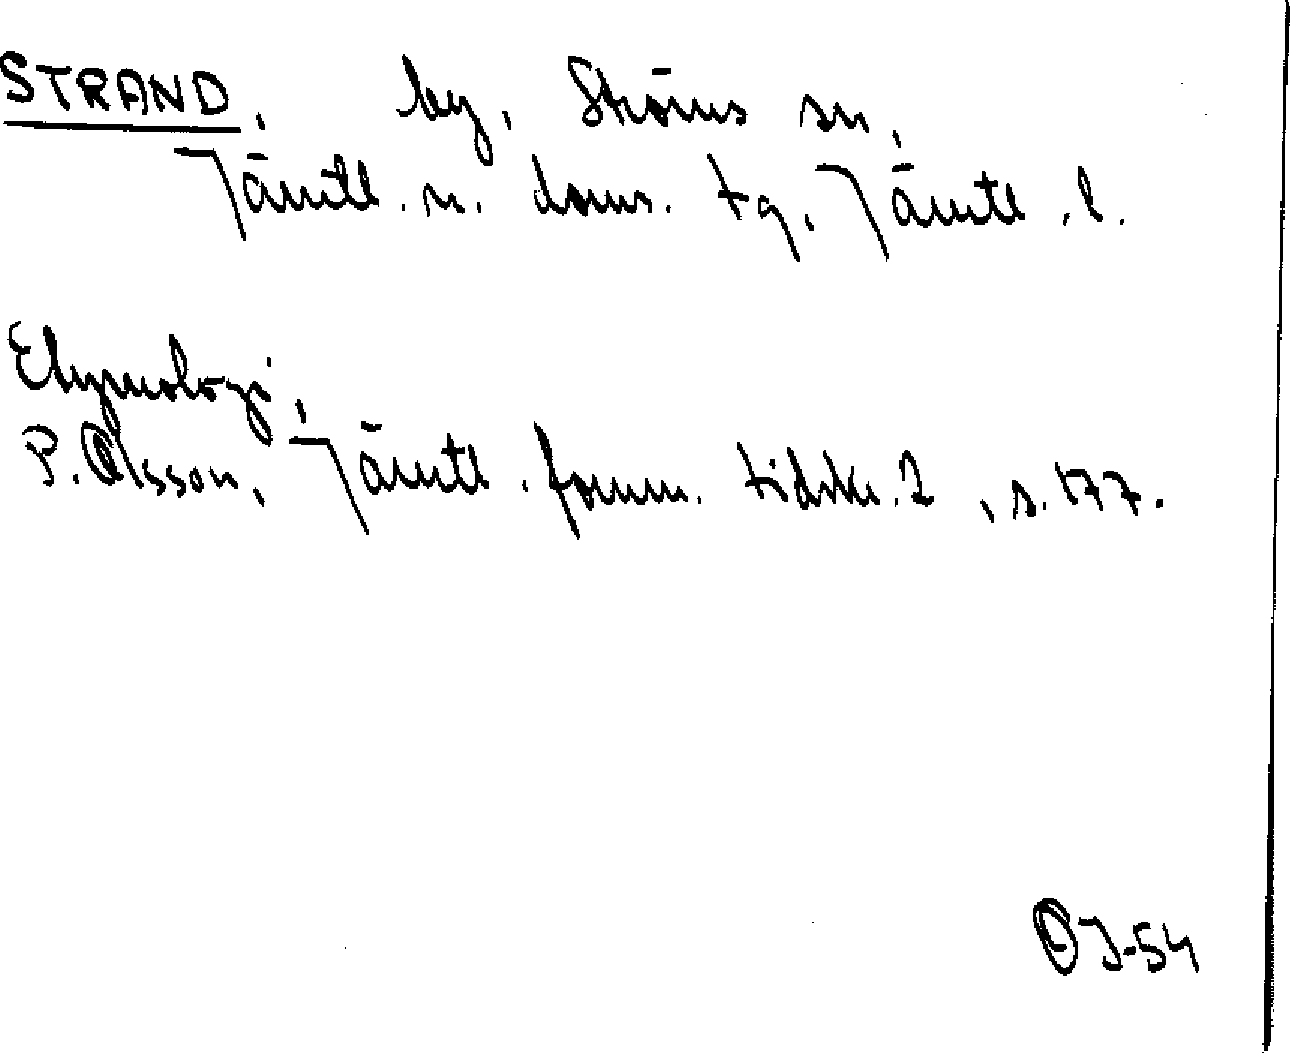 STRAND, by, Ströms sn,
Jämtl. n. doms. tg, Jämtl. l.
Etymologi,
P. Olsson, Jämtl. fornm. tidskr. 2, s. 177.
OJ-54